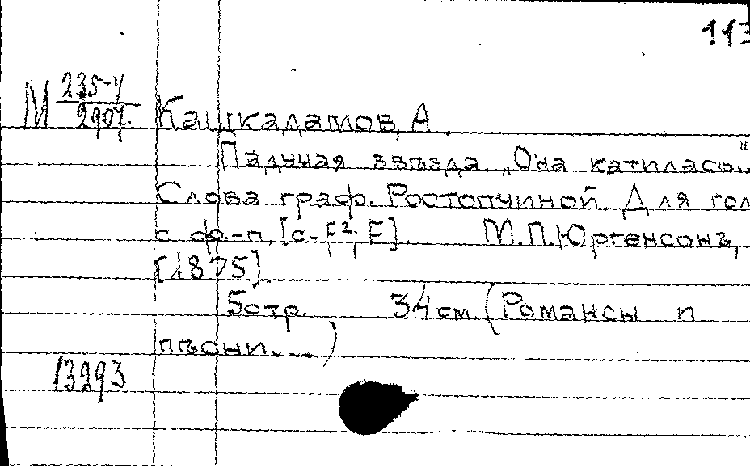 113
М 235-4/2907. Кашкадамов, А.
Падучая звѣзда „Она катилась..."
Слова граф. Ростопчиной. Для гол
с ф.-п. [c-F²; F]. М. П. Юргенсонъ,
[1875].
5 стр. 34 см. (Романсы и
пѣсни...)
13293